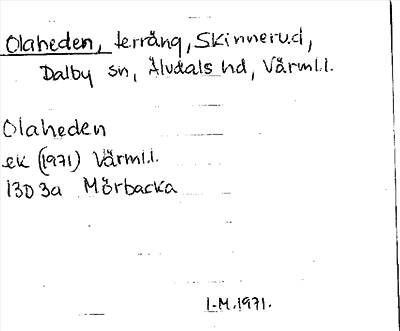 Olaheden, terräng, Skinnerud,
Dalby sn, Älvdals hd, Värml.l.
Olaheden
ek (1971) Värml.l.
13D 3a Mörbacka
I-M.1971.